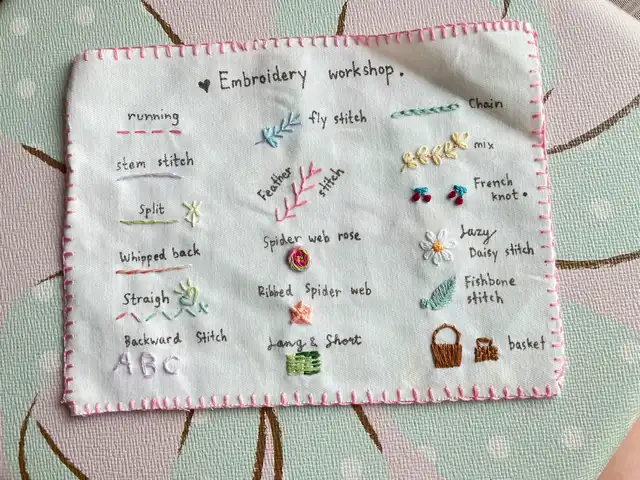 ♥ Embroidery workshop.
running
stem stitch
Split
Whipped back
Straigh
Backward Stitch
ABC
fly stitch
Feather stitch
Spider web rose
Ribbed Spider web
Lang & Short
Chain
mix
French
knot.
Lazy
Daisy stitch
Fishbone
stitch
basket